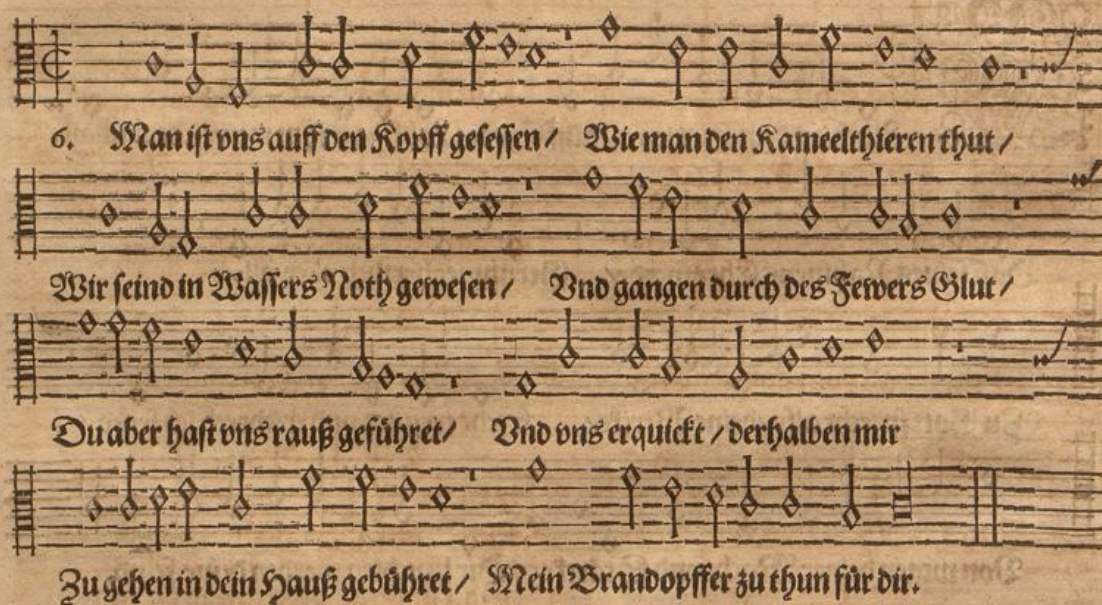 6. Man ist vns auff den Kopff gesessen / Wie man den Kameelthieren thut /
Wir seind in Wassers Noth gewesen / Vnd gangen durch des Fewers Glut /
Du aber hast vns rauß geführet / Vnd vns erquickt / derhalben mir
Zu gehen in dein Hauß gebühret / Mein Brandopffer zu thun für dir.